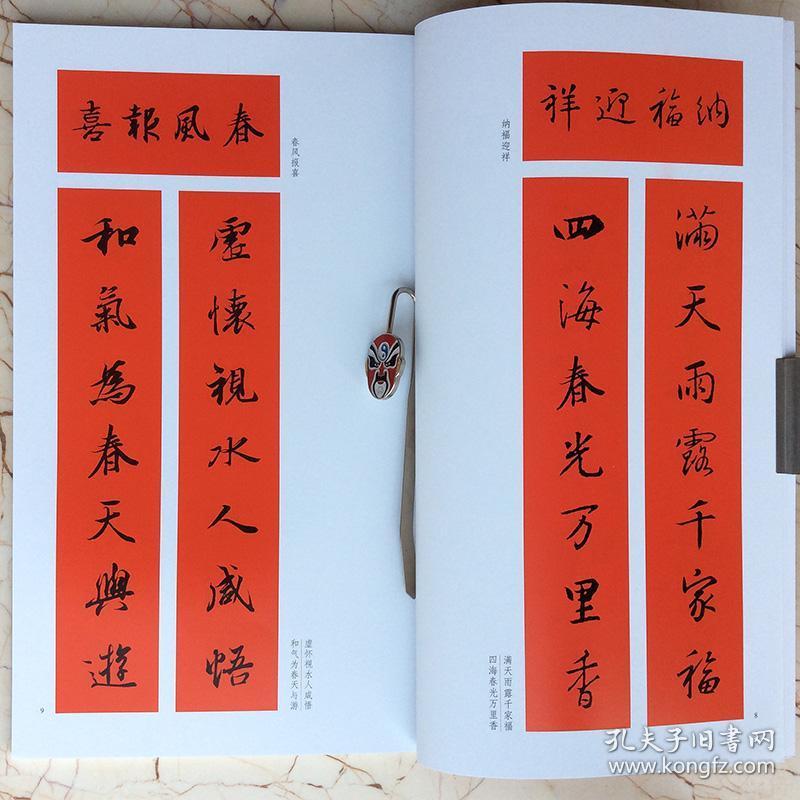 纳福迎祥
纳福迎祥
滿天雨露千家福
四海春光万里香
满天雨露千家福
四海春光万里香
8
春風報喜
春风报喜
虛懷視水人咸悟
和氣為春天與遊
虚怀视水人咸悟
和气为春天与游
9
孔夫子旧书网
www.kongfz.com